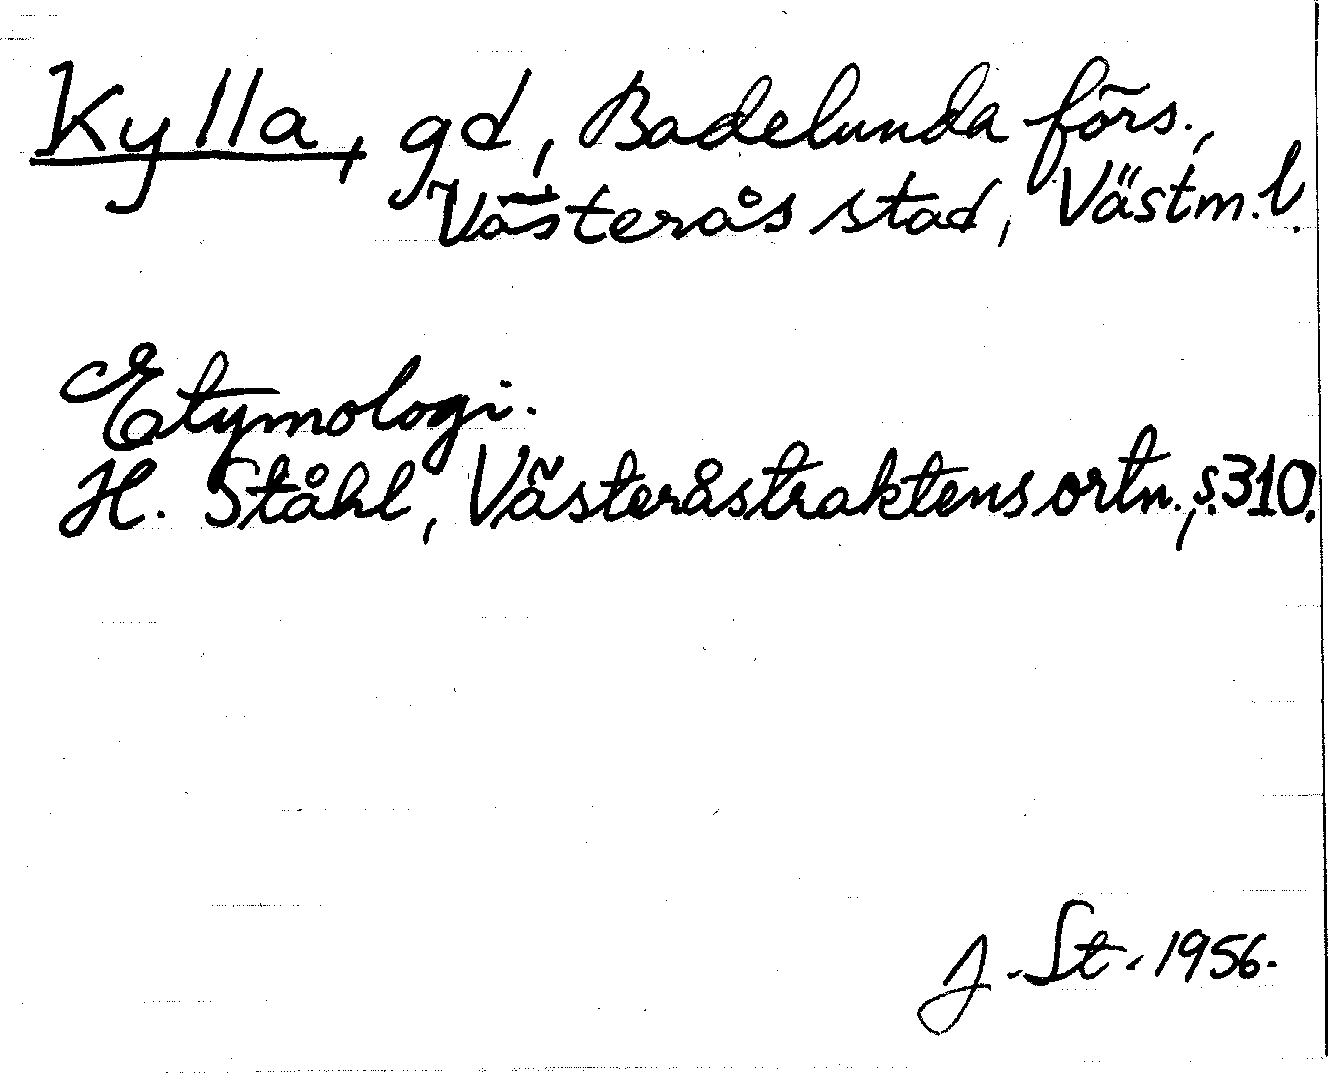 Kylla, gd, Badelunda förs.,
Västerås stad, Västm. l.
Etymologi.
H. Ståhl, Västeråstraktens ortn., s. 310.
J. St. 1956.